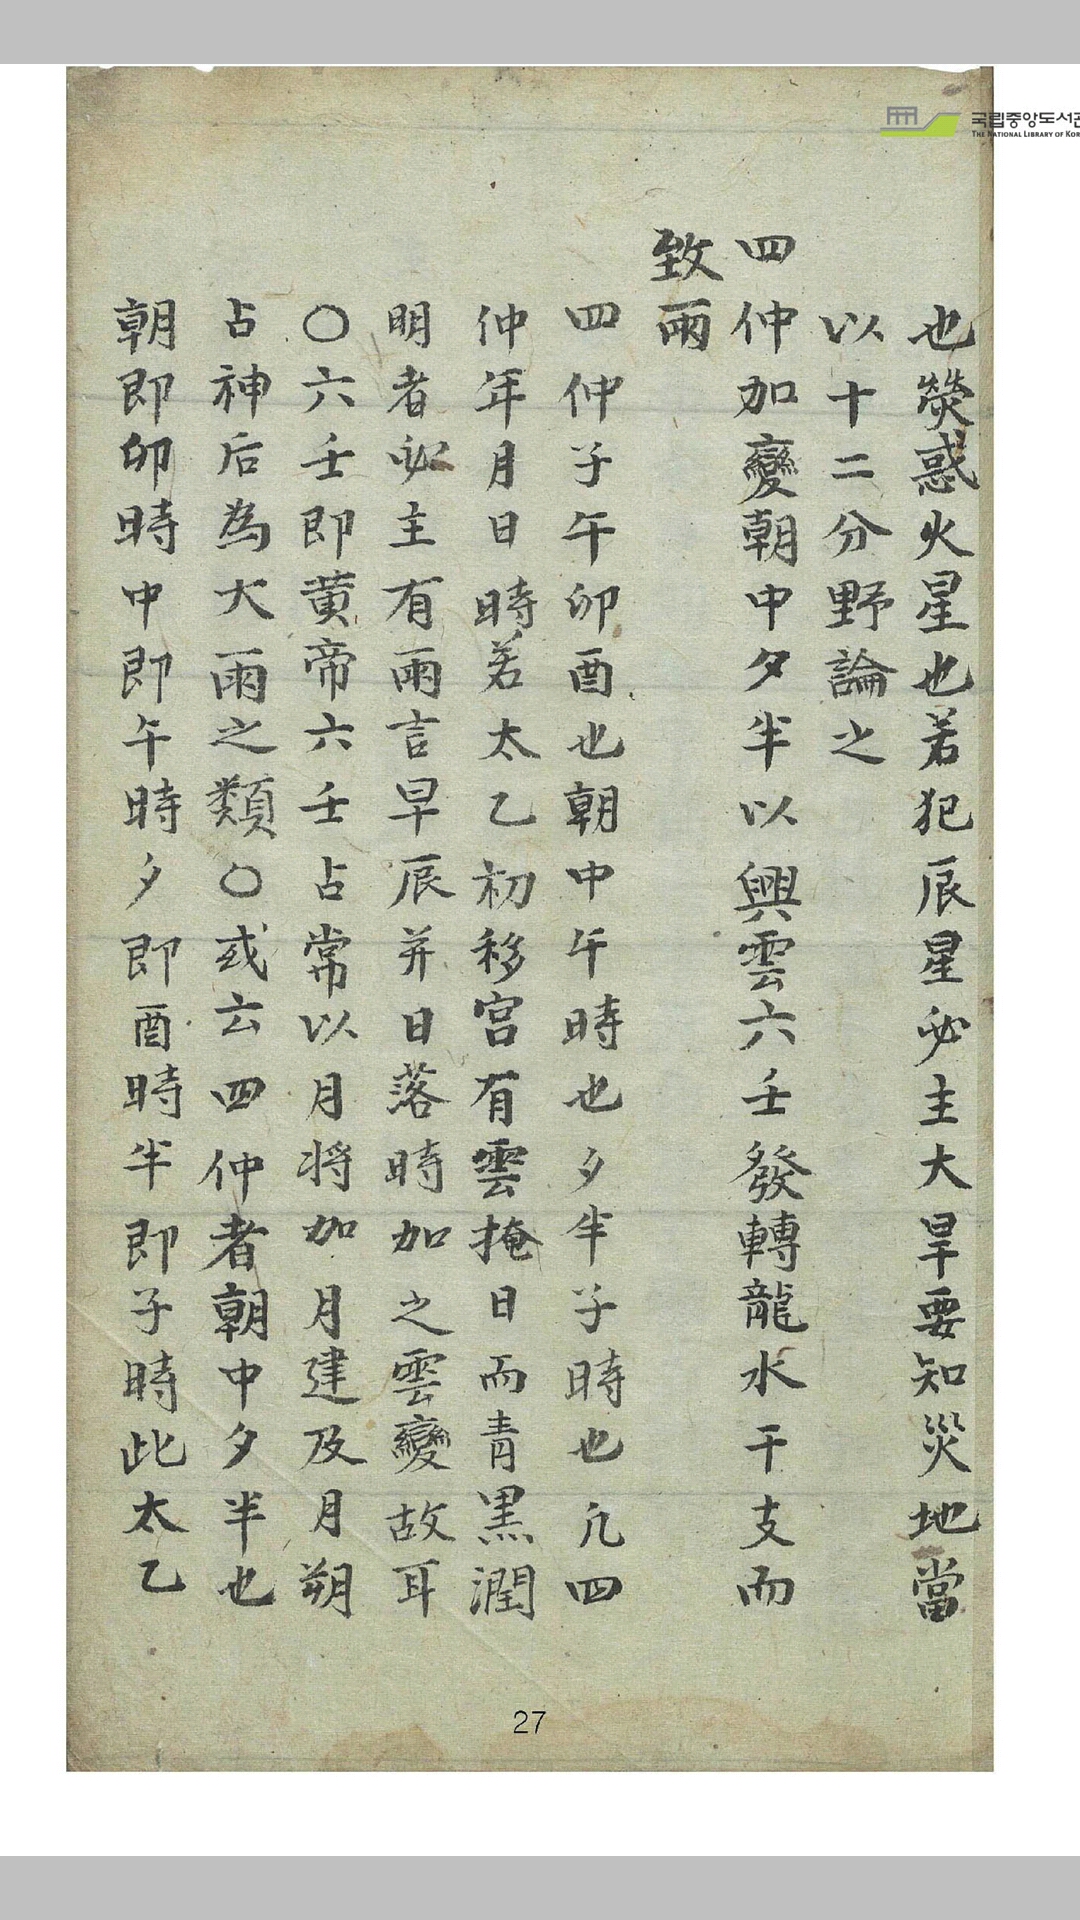 也熒惑火星也若犯辰星必主大旱要知災地當
以十二分野論之
四仲加變朝中夕半以興雲六壬發轉龍水干支而
致雨
四仲子午卯酉也朝中午時也夕半子時也凢四
仲年月日時若太乙初移宮有雲掩日而青黑潤
明者必主有雨言早辰并日落時加之雲變故耳
〇六壬即黄帝六壬占常以月将加月建及月朔
占神后為大雨之類〇或云四仲者朝中夕半也
朝即卯時中即午時夕即酉時半即子時此太乙
국립중앙도서관
THE NATIONAL LIBRARY OF KOR
27